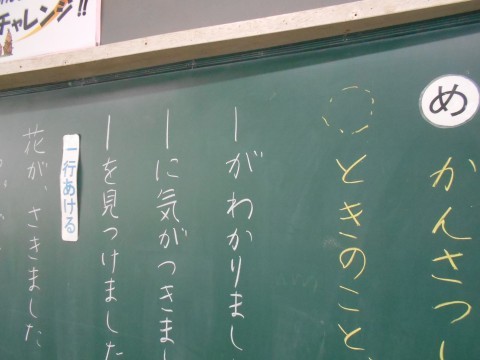 チャレンジ!!
め
かんさつし
ときのこと
ーがわかりまし
ーに気がつきまし
ーを見つけました
一行あける
花が、さきました